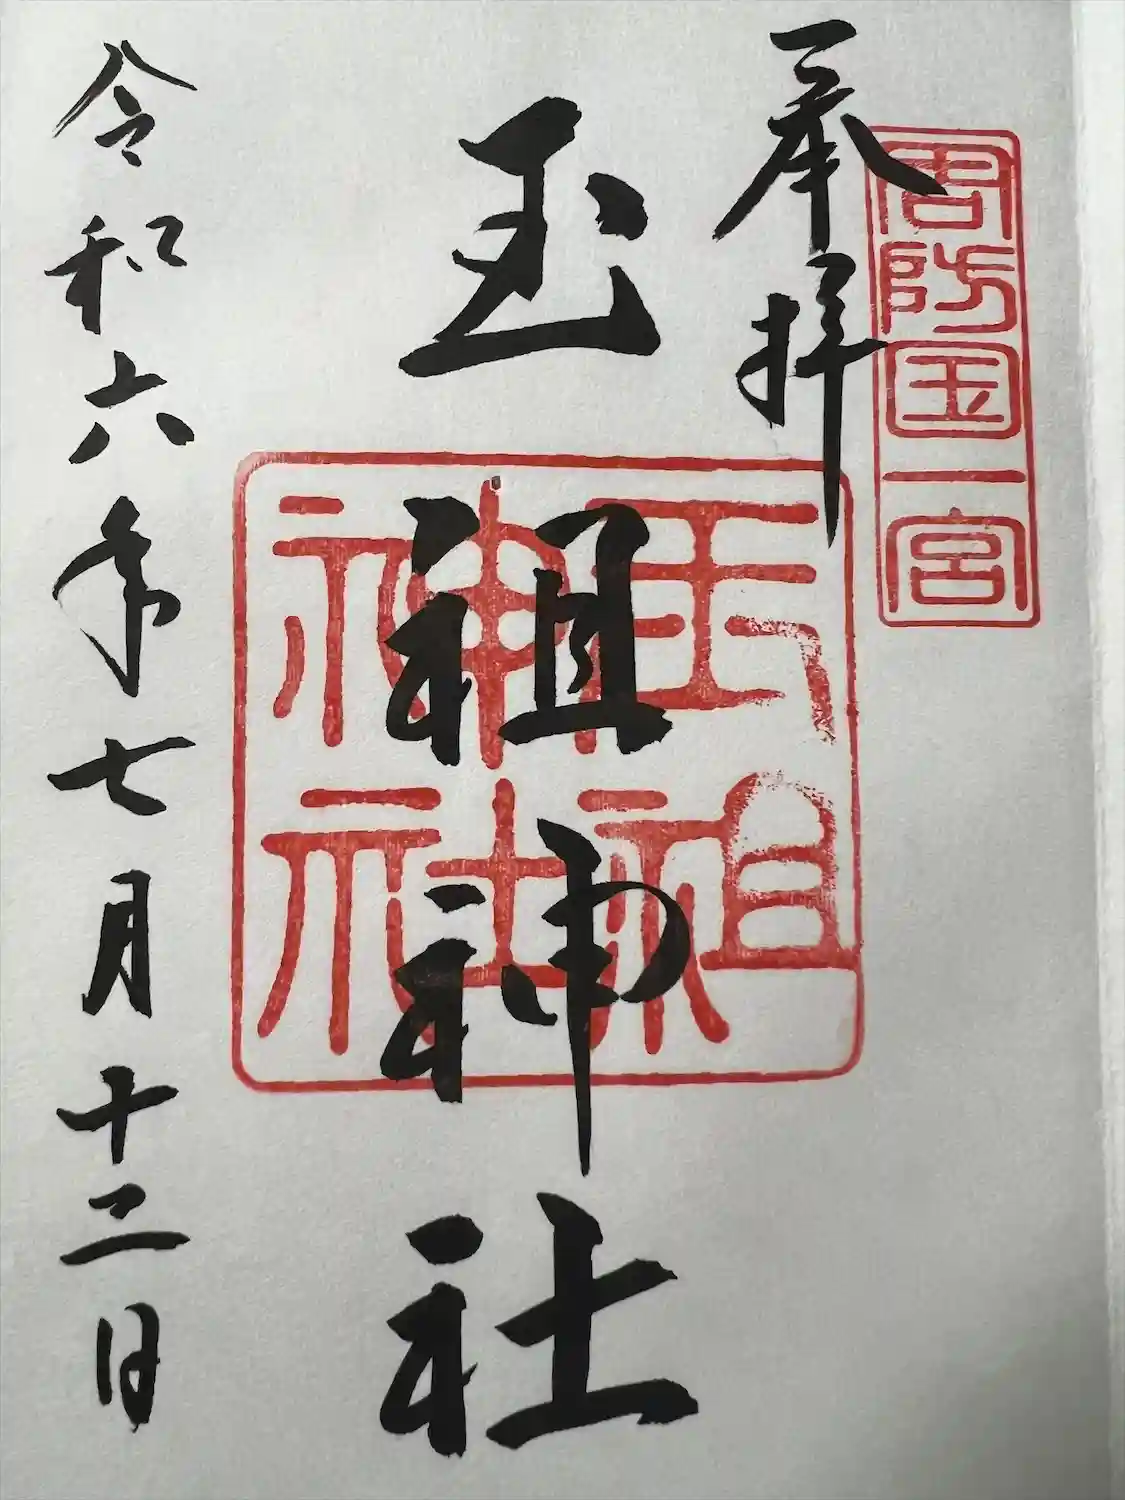 周防国一宮
奉拝
玉祖神社
玉祖
神社
令和六年七月十二日